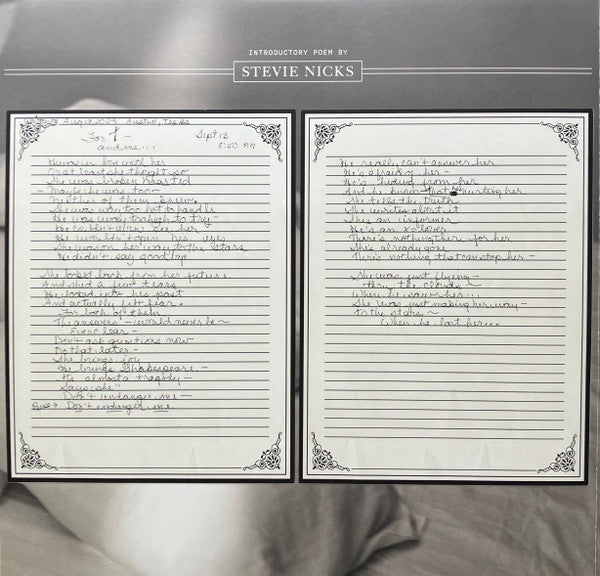 INTRODUCTORY POEM BY
STEVIE NICKS
Aug 13, 2023 Austin, Texas
For T —
and me...
Sept 13
He was in love with her
Or at least she thought so
She was broken hearted
~ Maybe he was too —
Neither of them knew
She was way too hot to handle
He was way too high to try —
He couldn't even see her
He wouldn't open his eyes
She was on her way to the stars
He didn't say goodbye
She looked back from her future
And shed a few tears
He looked into his past
And actually felt fear.
For both of them
The answers — would never be ~
Ever clear —
Don't ask questions now
Do that later —
She brings joy
He brings Shakespeare —
It's almost a tragedy —
Says she"
Don't endanger me —
Don't endanger me.
He really can't answer her
He's afraid of her —
He's hiding from her
And he knows that he's hurting her
She tells the truth
She writes about it
She's an informer
He's an x-lover
There's nothing there for her
She's already gone
There's nothing that can stop her —
She was just flying —
thru the clouds —
When he saw her...
She was just making her way —
to the stars ~
When he lost her...